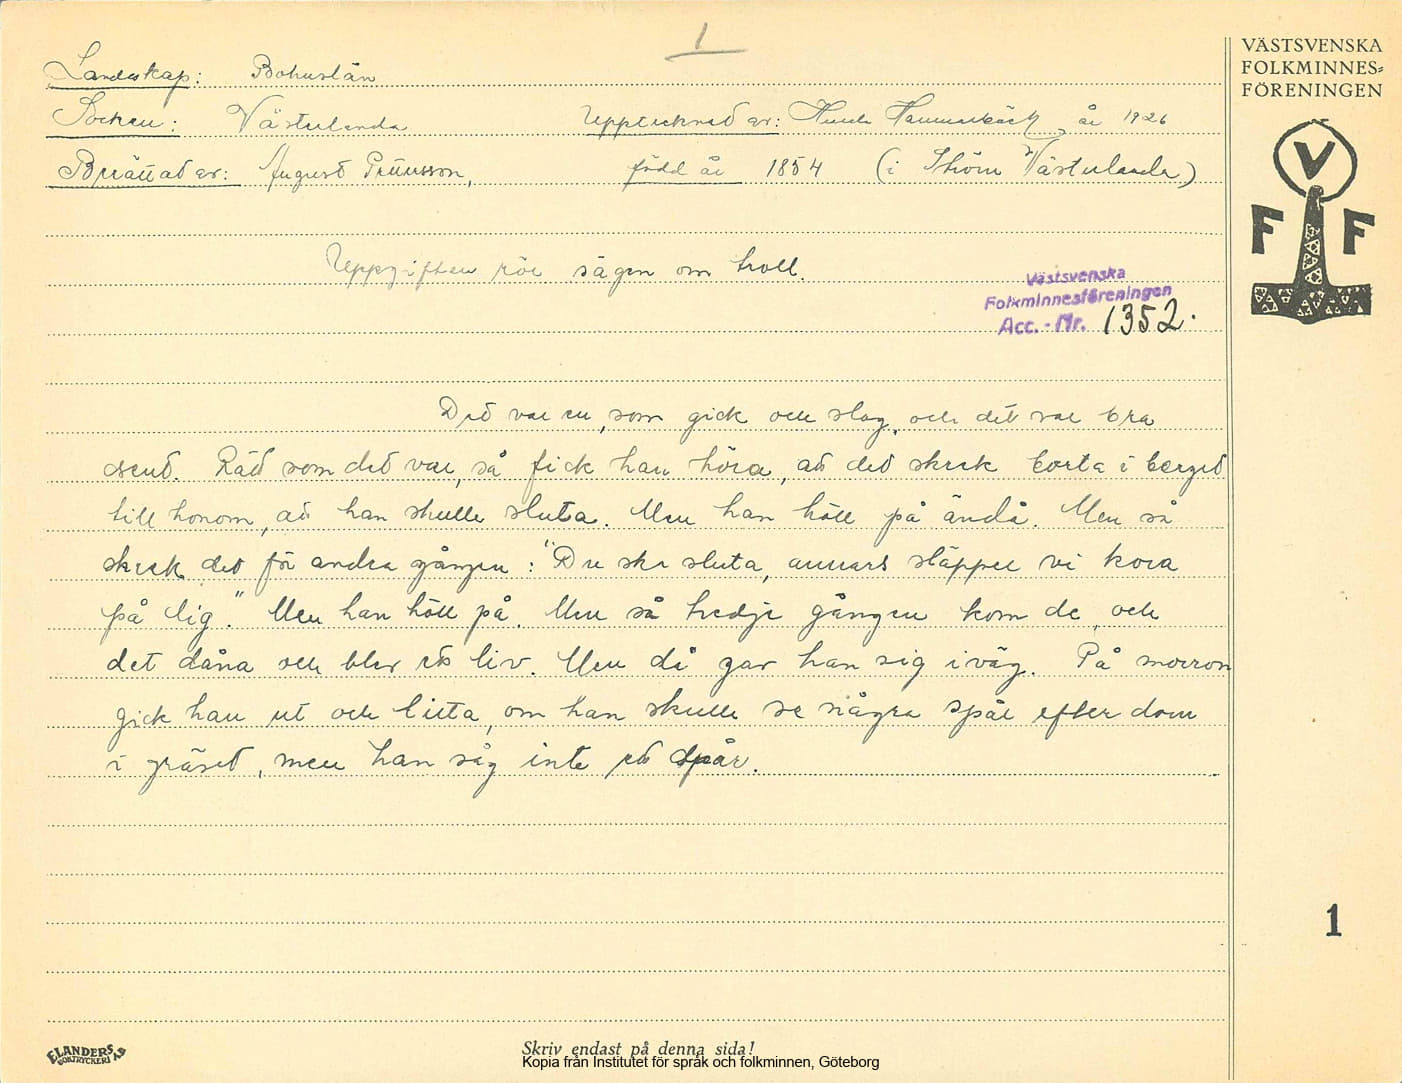 1
VÄSTSVENSKA
FOLKMINNES=
FÖRENINGEN
Landskap: Bohuslän
Socken: Västerlanda Upptecknad av: Hammarbäck år 1926
Berättad av: August Pettersson, född år 1854 (i Ström Västerlanda)
V
F F
Uppgiften rör sägen om troll.
Västsvenska
Folkminnesföreningen
Acc. - Nr. 1352.
Det var en, som gick och slog, och det var bra
sent. Rätt som det var, så fick han höra, att det skrek borta i berget
till honom, att han skulle sluta. Men han höll på ändå. Men så
skrek det för andra gången: "Du ska sluta, annars släpper vi kora
på dig." Men han höll på. Men så tredje gången kom de, och
det dåna och blev ett liv. Men då gav han sig iväg. På morron
gick han ut och titta, om han skulle se några spår efter dom
i gräset, men han såg inte ett spår.
1
ELANDERS
BOKTRYCKERI A.B
Skriv endast på denna sida!
Kopia från Institutet för språk och folkminnen, Göteborg